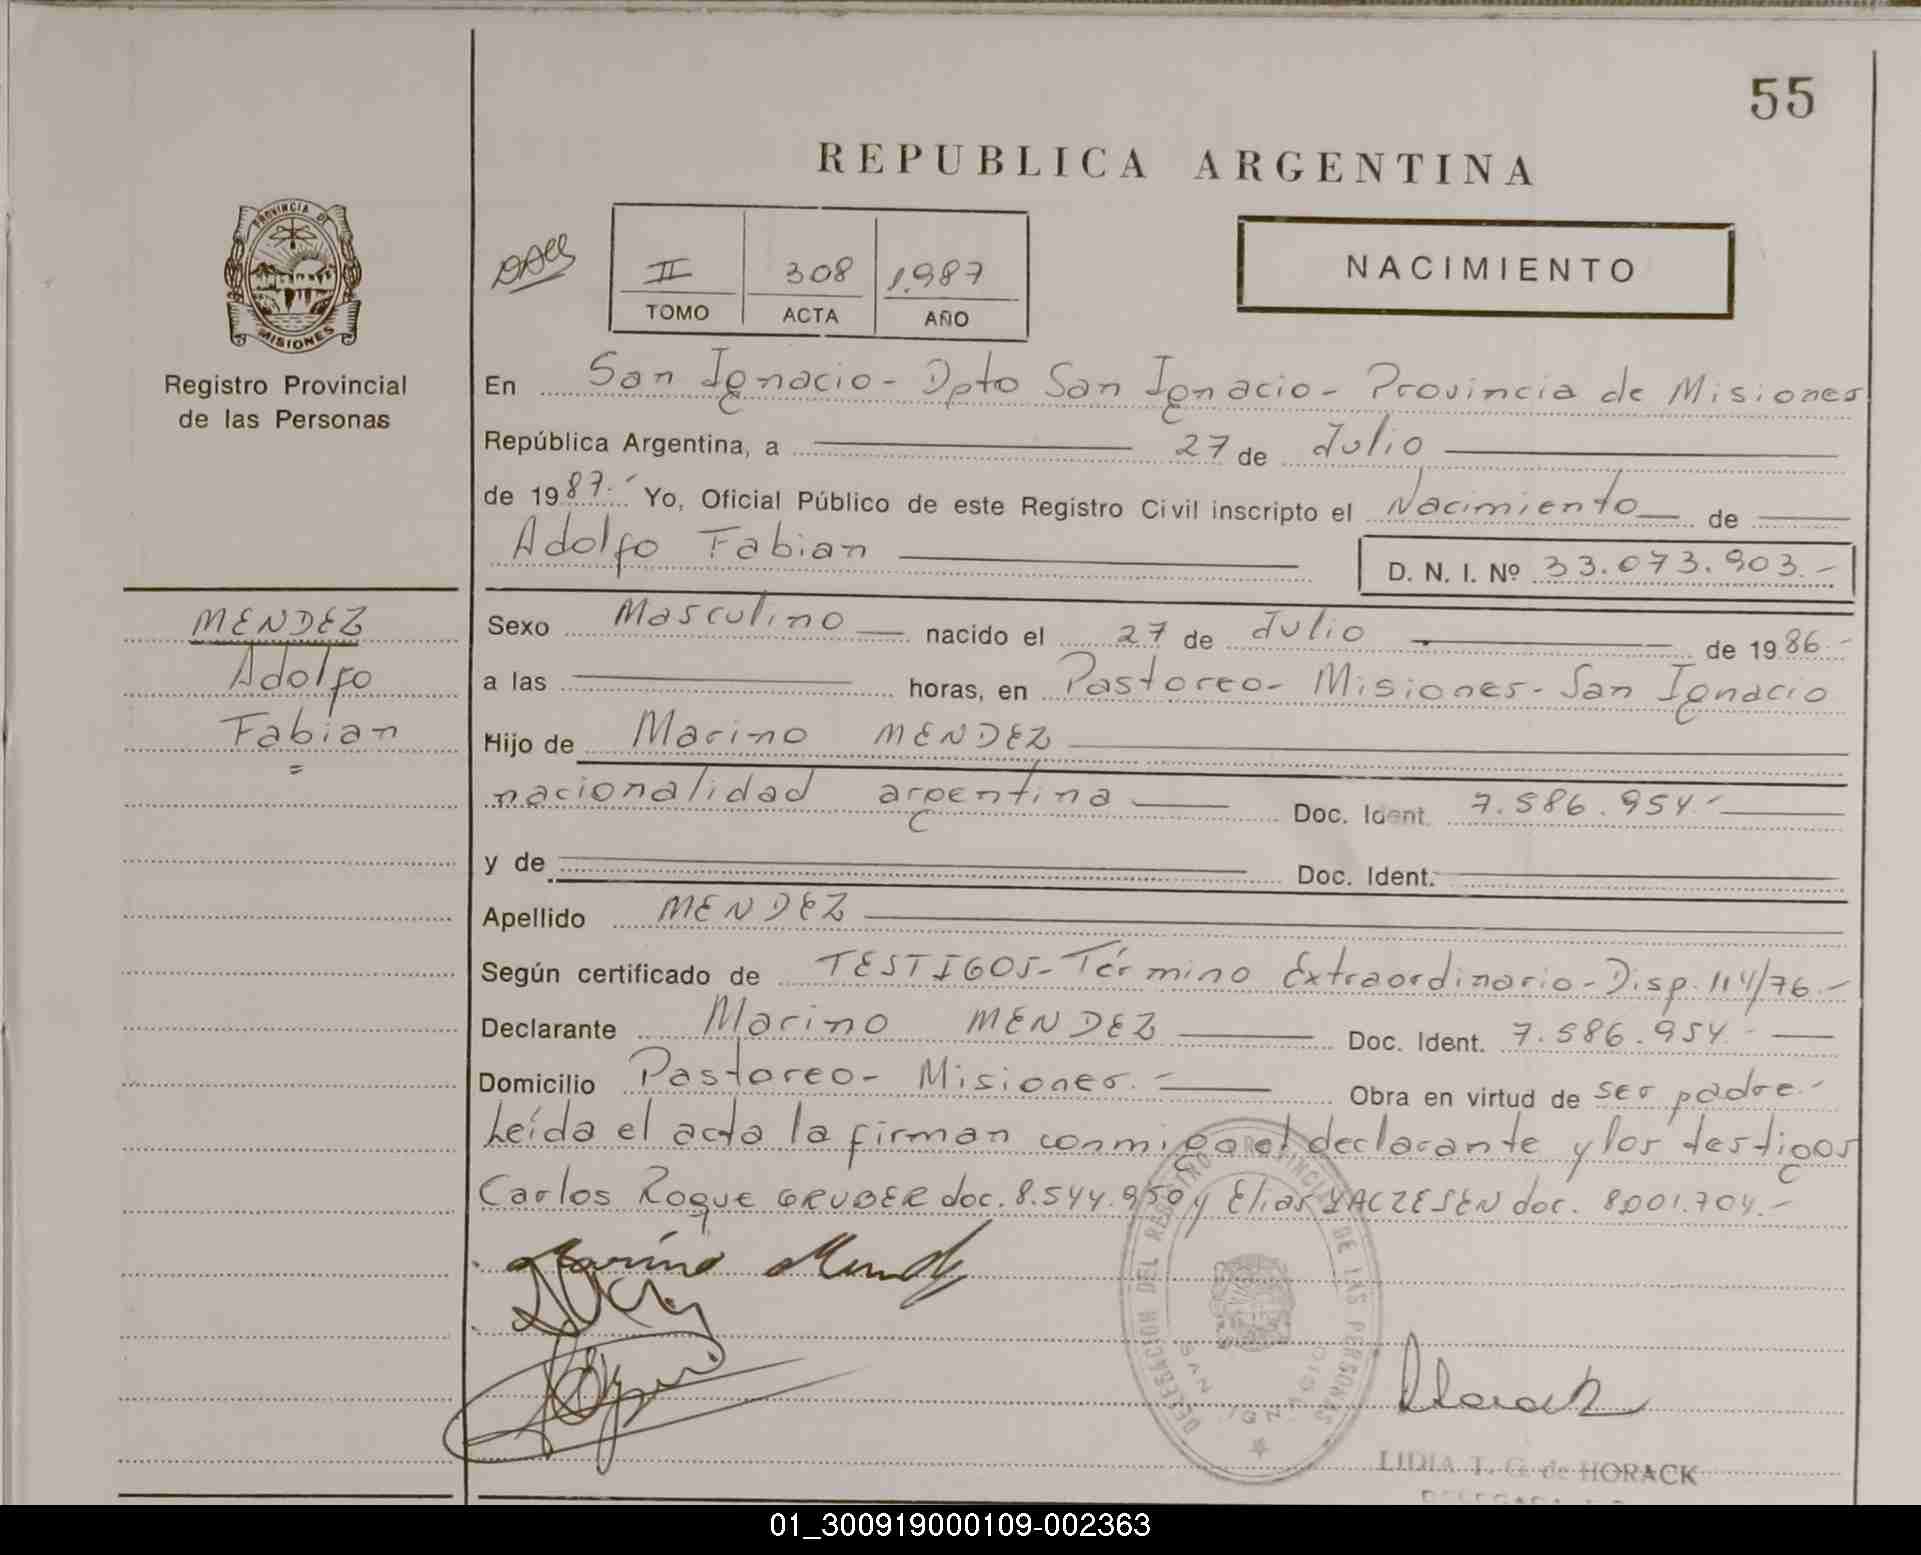 55
REPUBLICA ARGENTINA
PROVINCIA DE
MISIONES
Registro Provincial
de las Personas
II 308 1.987
TOMO ACTA AÑO
NACIMIENTO
En San Ignacio - Dpto San Ignacio - Provincia de Misiones
República Argentina, a 27 de Julio
de 1987.- Yo, Oficial Público de este Registro Civil inscripto el Nacimiento de
Adolfo Fabian D. N. I. Nº 33.073.903.-
MENDEZ
Adolfo
Fabian
=
Sexo Masculino nacido el 27 de Julio de 1986.-
a las horas, en Pastoreo - Misiones - San Ignacio
Hijo de Marino MENDEZ
nacionalidad argentina Doc. Ident. 7.586.954.-
y de Doc. Ident.
Apellido MENDEZ
Según certificado de TESTIGOS - Término Extraordinario - Disp. 114/76.-
Declarante Marino MENDEZ Doc. Ident. 7.586.954.-
Domicilio Pastoreo - Misiones.- Obra en virtud de ser padre.-
Leída el acta la firman conmigo el declarante y los testigos
Carlos Roque GRUBER doc. 8.544.950 y Elias YACZESEN doc. 8.001.704.-
Marino Mendez
DELEGACION DEL REGISTRO PROVINCIAL DE LAS PERSONAS
SAN IGNACIO
Horack
LIDIA T. G. de HORACK
01_300919000109-002363